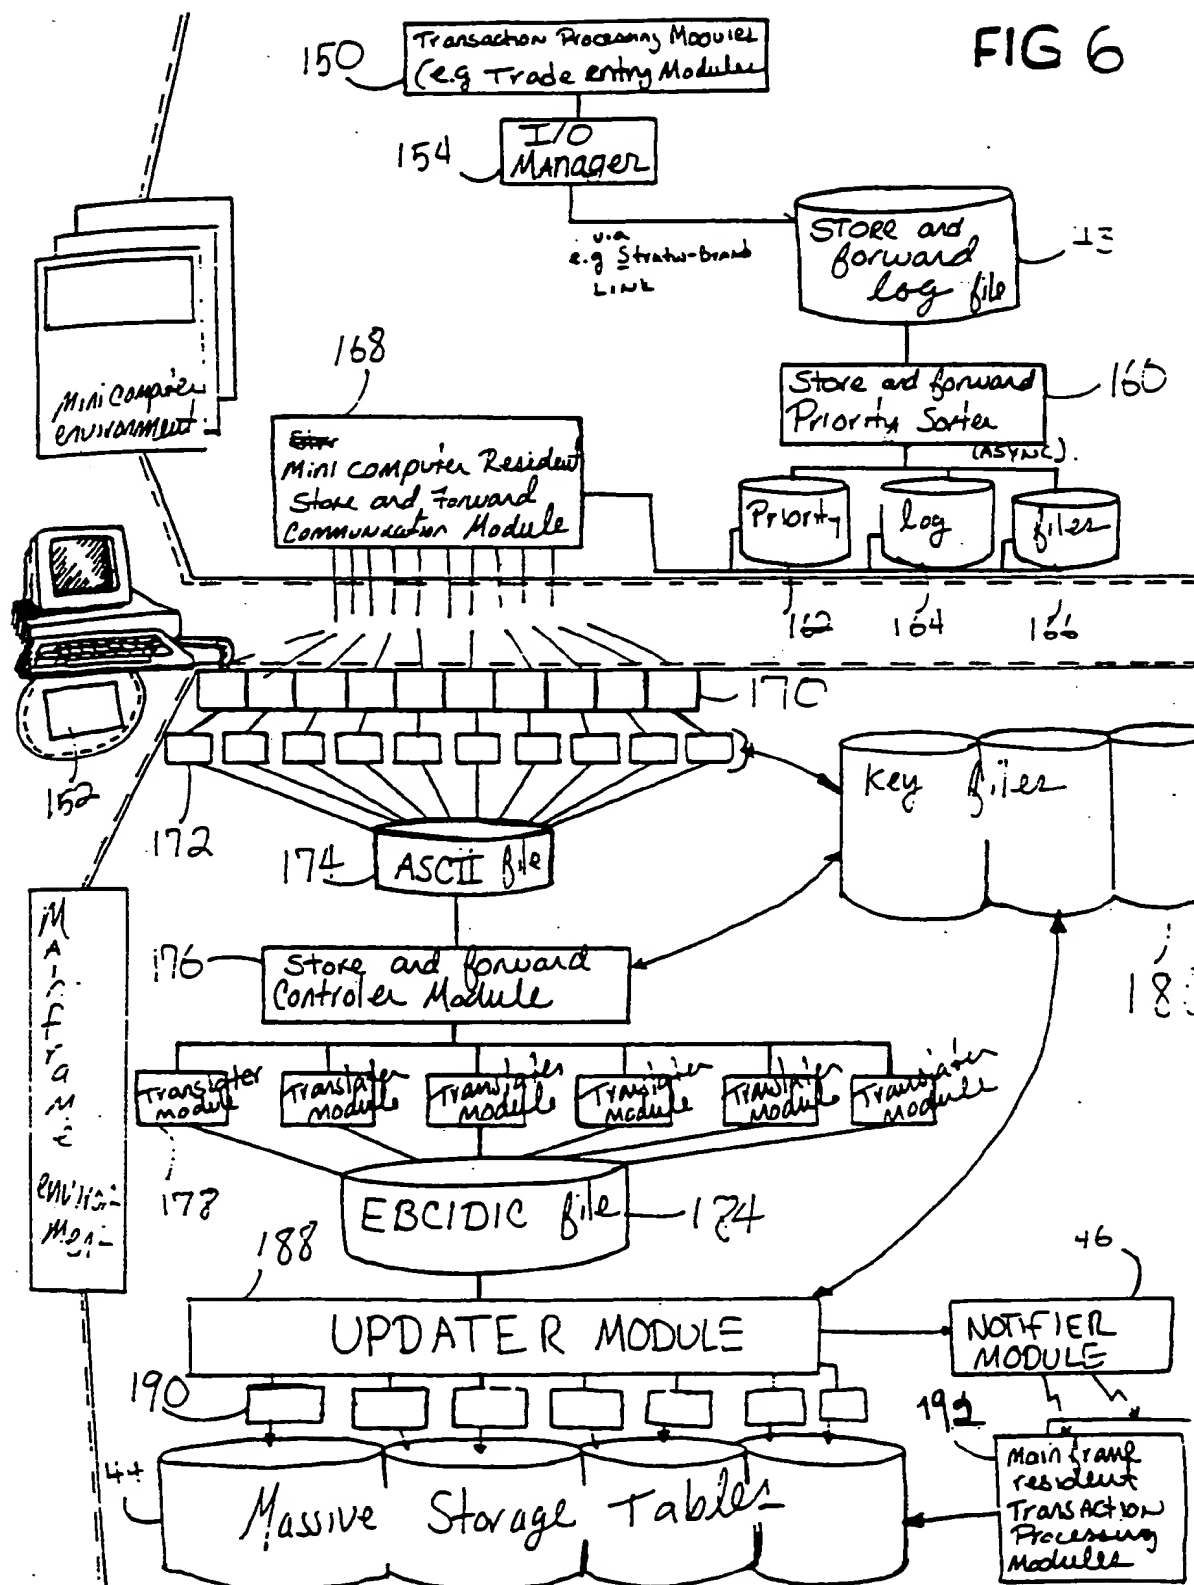 FIG 6
150
Transaction Processing Modules
(e.g Trade entry Modules
154
I/O
Manager
via
e.g Stratus-Brand
LINK
STORE and
forward
log file
168
Store and forward
Priority Sorter
160
(ASYNC).
Mini computer
environment
Mini computer Resident
Store and Forward
Communication Module
Priority
log
files
162
164
166
170
152
172
174
ASCII file
Key files
176
Store and forward
Controler Module
Mainframe
Translater
module
Translater
Module
Translater
Module
Translater
Module
Translater
Module
Translater
Module
178
EBCIDIC file
188
46
UPDATER MODULE
NOTIFIER
MODULE
190
192
44
Massive Storage Tables
Main frame
resident
TransACTION
Processing
Modules